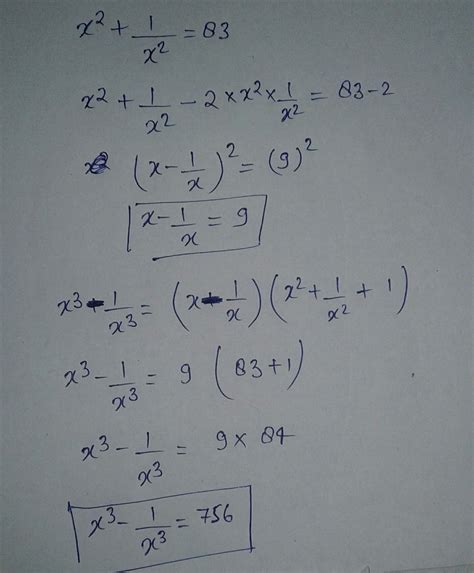 x² + 1/x² = 83
x² + 1/x² - 2 × x² × 1/x² = 83 - 2
(x - 1/x)² = (9)²
x - 1/x = 9
x³ - 1/x³ = (x - 1/x) (x² + 1/x² + 1)
x³ - 1/x³ = 9 (83 + 1)
x³ - 1/x³ = 9 × 84
x³ - 1/x³ = 756